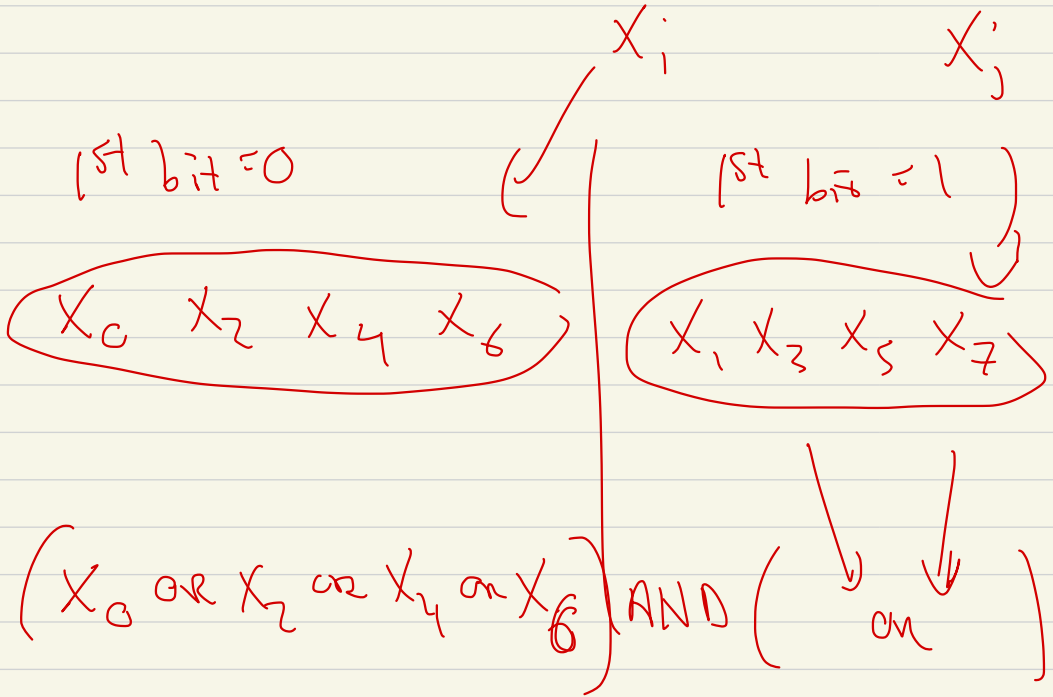 Xi Xj
1st bit=0 1st bit=1
X0 X2 X4 X6 X1 X3 X5 X7
(X0 OR X2 OR X4 OR X6) AND ( OR )